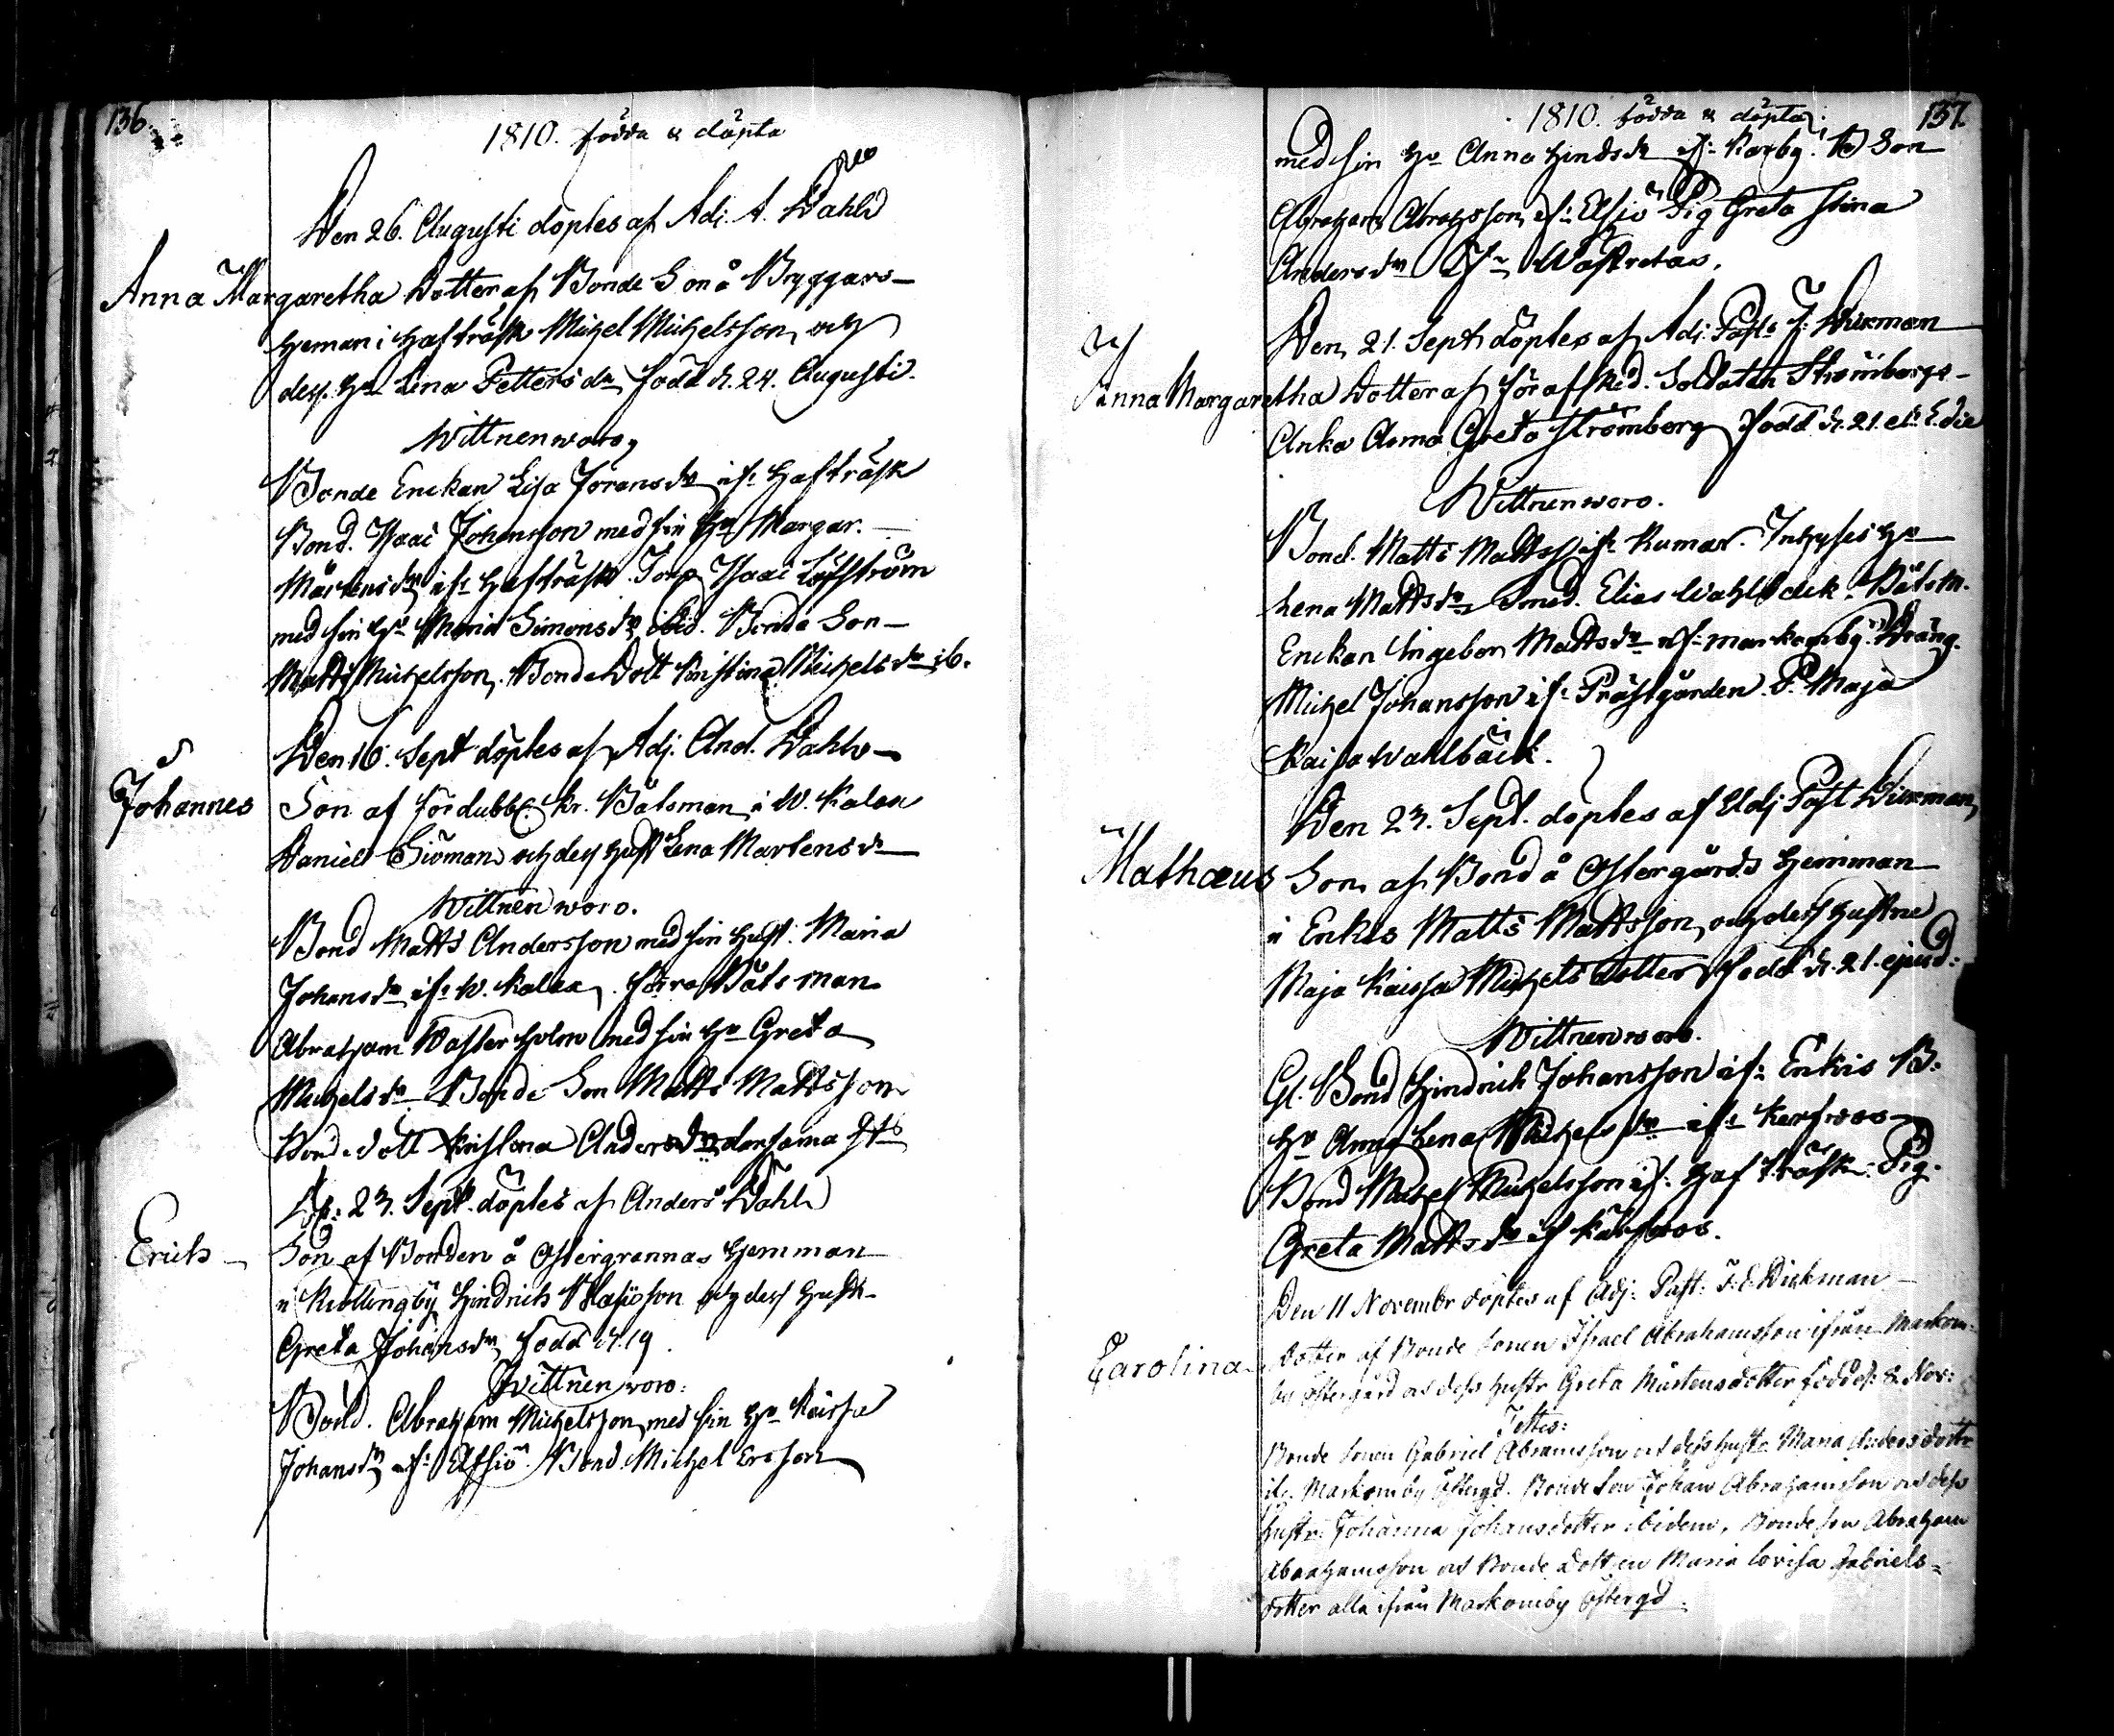 136.
1810. födda & döpta
Den 26. Augusti döptes af Adj. A. Dahl
Anna Margaretha Dotter af Bonde Son å Byggars-
heman i Hafträsk Michel Michelsson, och
dess Hu Lena Petters dr, född d. 24. Augusti.
Wittnen woro,
Bonde Enckan Lisa Jörans dr if: Hafträsk
Bond. Isaac Johansson med sin Hu Margar.
Mårtens dr if: Hafträsk. Torp. Isaac Löfström
med sin Hu Maria Simons dr ibid. Bonde Son
Matts Michelsson, Bonde Dott Kristina Michels dr ib.
Den 16. Sept döptes af Adj. And. Dahl
Johannes Son af fördubbl. Kr. Båtsman i W. Kalax
Daniel Siöman och dess Hust Lena Martens dr
Wittnen woro.
Bond Matts Andersson med sin Hust. Maria
Johans dr if: W. Kalax, förra Båtsman
Abraham Wästerholm med sin Hu Greta
Michels dr. Bonde Son Matts Mattsson
Bonde dott Kristena Anders dr dersama
d: 23. Sept. döptes af Anders Dahl
Erich Son af Bonden å Östergrannas Hemman
i Knöllingby Hindrich Blasisson och dess Hustr
Greta Johans dr, född d. 19
Wittnen woro:
Bond. Abraham Michelsson med sin Hu Kaissa
Johans dr if: Elfsiö. Bond. Michel Ersson
137.
1810. födda & döpta:
med sin Hu Anna Hinds dr if: Karby. Son
Abraham Abrahsson if: Elfsiö Pig Greta Stina
Anders dr
Den 21. Sept döptes af Adj. Past: J. Dickman
Anna Margaretha Dotter af för afsked. Soldaten Strömbergs
Enka Anna Greta Strömberg född d. 21.
Wittnen woro.
Bond. Matts Mattss if: Rumar. Inhyses Hu
Lena Matts dr Smed. Elias Wahlbäck. Båtsm.
Enckan Ingebor Matts dr if: markomby. Dräng.
Michel Johansson if: Prästgården. P. Maja
Kaisa Wahlbäck.
Den 23. Sept. döptes af Adj Past Dickman,
Mathæus Son af Bond å Östergårds Hemman
i Enkis Matts Mattsson, och dess Hustru
Maja Kaissa Michels dotter född d. 21. ejusd:
Wittnen woro.
Gl. Bond Hindrich Johansson if: Enkis B:
Hu Anna Lena Michels dr if: Kerfsoos
Bond Michel Michelsson if: Hafträsk. Pig.
Greta Matts dr if Kärfsoos.
Den 11 Novembr döptes af Adj: Past: J: E: Dickman
Carolina Dotter af Bonde Sonen Israel Abrahamsson ifrån Markom-
by Östergård o dess Hustr Greta Mårtensdotter född d: 8. Nov:
Testes:
Bonde Sonen Gabriel Abramsson o dess hustr Maria Andersdottr
if: Markomby Östergd. Bonde Son Johan Abrahamsson o dess
Hustr: Johanna Johansdotter ibidem, Bonde Son Abraham
Abrahamsson o Bonde Dotten Maria Lovisa Gabriels-
dotter alla ifrån Markomby Östergd.